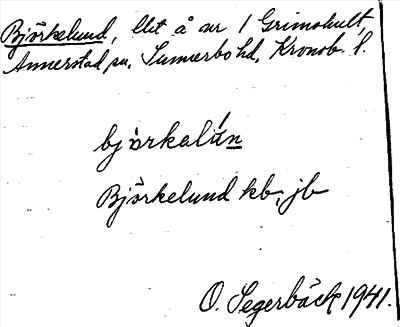 Björkelund, lht å nr 1 Grimshult,
Annerstad sn. Sunnerbo hd, Kronob. l.
björkalún
Björkelund kb, jb
O. Segerbäck 1941.